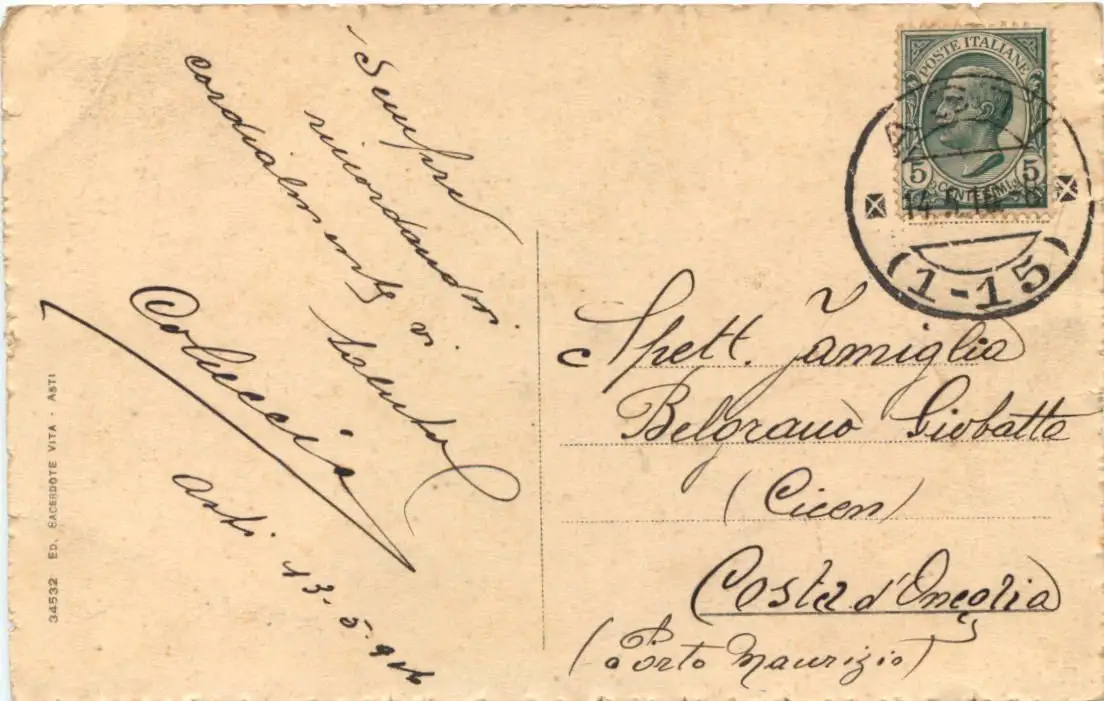 Sempre
ricordandovi
cordialmente vi
saluta
Coluccia
Asti 13-5-916
34532 ED. SACERDOTE VITA - ASTI
POSTE ITALIANE
5 CENTESIMI 5
14.5.16
(1-15)
Spett. Famiglia
Belgrano Giobatta
(Cicen)
Costa d'Oneglia
(Porto Maurizio)